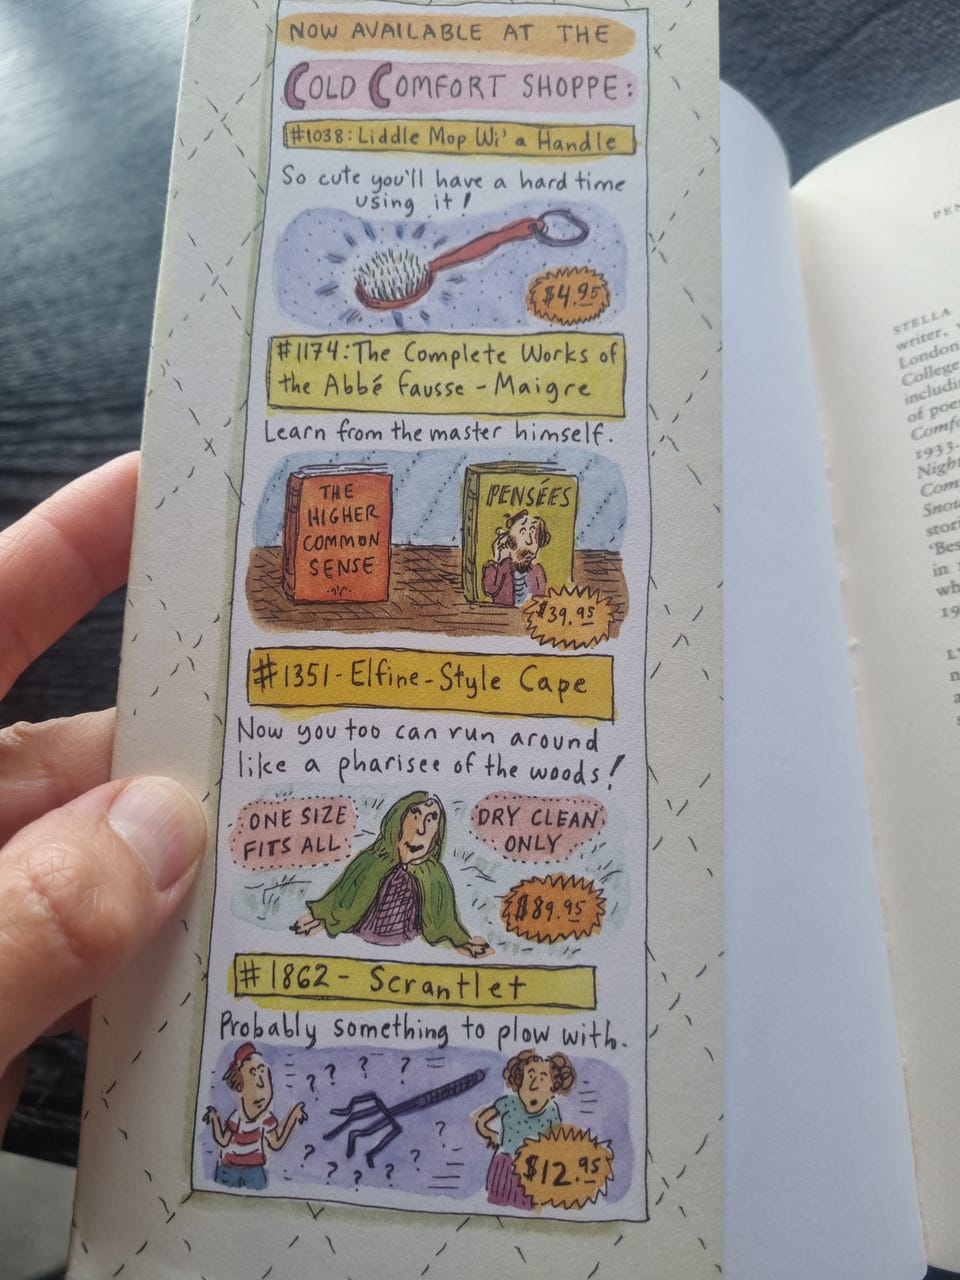 NOW AVAILABLE AT THE
COLD COMFORT SHOPPE:
#1038: Liddle Mop Wi' a Handle
So cute you'll have a hard time
using it!
$4.95
#1174: The Complete Works of
the Abbé Fausse-Maigre
Learn from the master himself.
THE
HIGHER
COMMON
SENSE
PENSÉES
$39.95
#1351-Elfine-Style Cape
Now you too can run around
like a pharisee of the woods!
ONE SIZE
FITS ALL
DRY CLEAN
ONLY
$89.95
#1862- Scrantlet
Probably something to plow with.
? ? ? ? ? ? ? ? ? ? ?
$12.95
PEN
STELLA
writer,
London
College
includin
of poe
Comfo
1933
Night
Com
Snow
stori
'Bes
in
wh
19